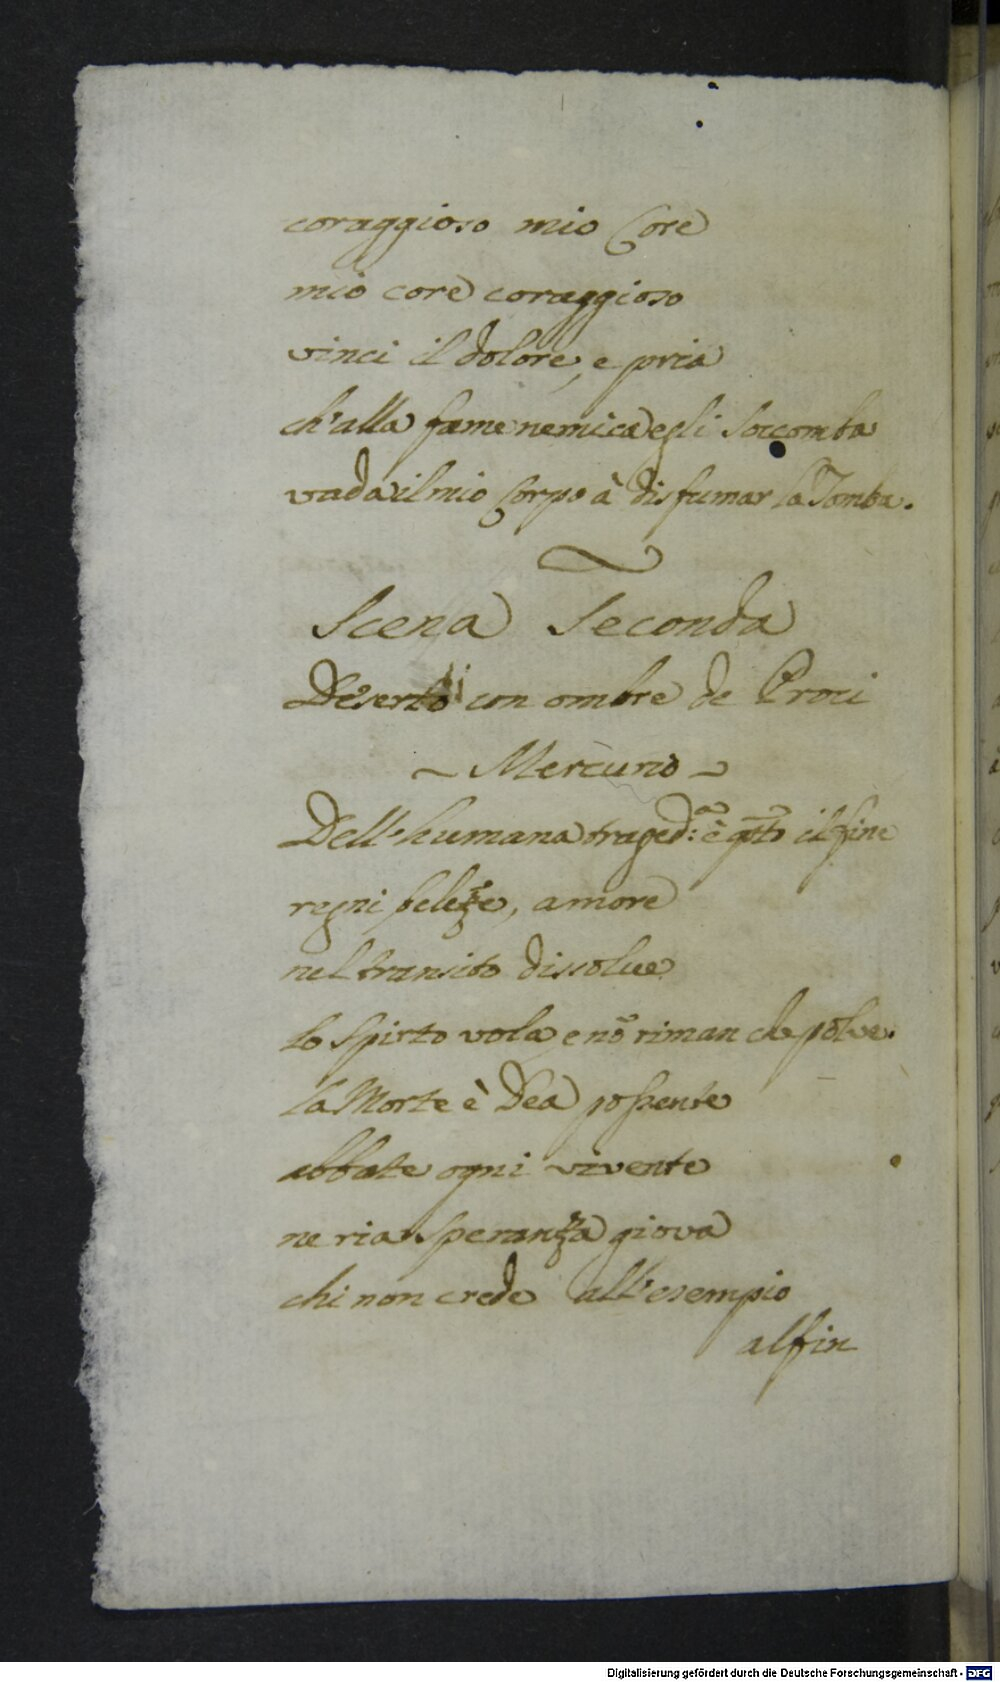 coraggioso mio Core
mio core coraggioso
vinci il dolore, e pria
ch'alla fame nemica egli soccomba
vada il mio Corpo à disfumar la Tomba.
Scena Seconda
Deserto con ombre de Proci
~ Mercurio ~
Dell'humana traged:ᵃ è qto il fine
regni belezze, amore
nel transito dissolve
lo spirto vola, e nõ riman che polve.
la Morte è Dea possente
abbate ogni vivente
ne ria speranza giova
chi non crede all'esempio
alfin
Digitalisierung gefördert durch die Deutsche Forschungsgemeinschaft - DFG